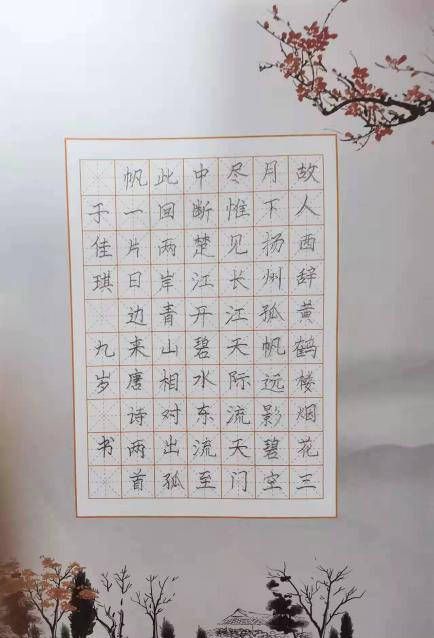 故人西辞黄鹤楼烟花三
月下扬州孤帆远影碧空
尽惟见长江天际流天门
中断楚江开碧水东流至
此回两岸青山相对出孤
帆一片日边来唐诗两首
于佳琪 九岁 书